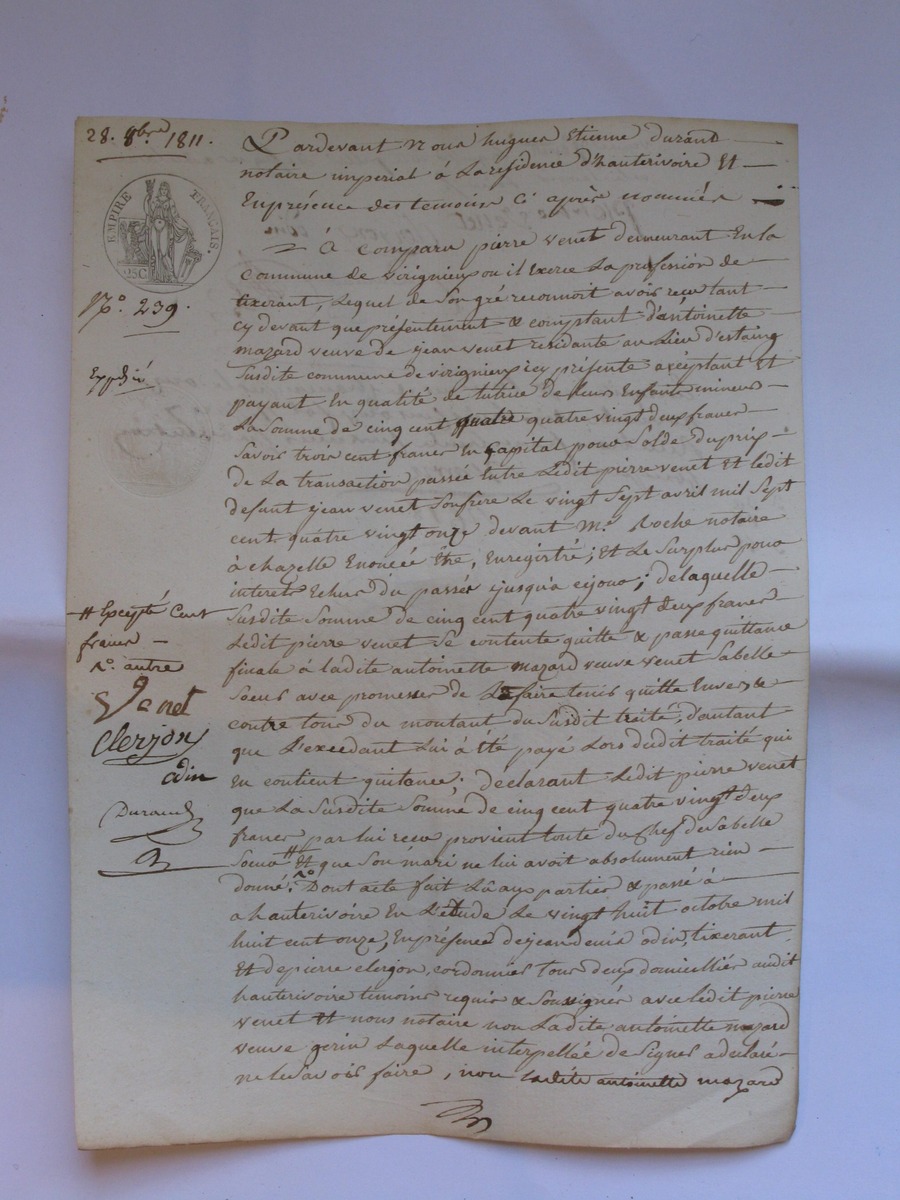 28. 8bre 1811.
EMPIRE FRANÇAIS.
25C
N.o 239.
Expedié
Pardevant Nous hugues Etienne durand
notaire imperial à La residence d'hauterivoire Et
En presence des temoins Ci après nommés
à comparu pierre venet demeurant En la
commune de virignieu ou il Exerce La profession de
tixerant, Lequel de Son gré reconnoit avoir recu tant
cy devant que présentement & comptant d'antoinette
mazard veuve de jean venet residante au Lieu d'estaing
Susdite commune de virignieu icy présente acceptant Et
payant En qualité de tutrice de Leurs Enfants mineurs
La Somme de cinq cent quatre vingt deux francs
Savoir trois cent francs En Capital pour Solde du prix
de La transaction passée Entre Ledit pierre venet Et Ledit
defunt jean venet Son frere Le vingt Sept avril mil Sept
cent quatre vingt onze devant Me Roche notaire
à chazelle Enoncée Etre, Enregistré; Et Le Surplus pour
interets Echus du passés jusqu'à cejour; de laquelle
Susdite Somme de cinq cent quatre vingt deux francs
Ledit pierre venet Se contente quitte & passe quittance
finale à ladite antoinette mazard veuve venet Sa belle
Soeur avec promesses de La faire tenir quitte Envers &
contre tous du montant du Susdit traité, d'autant
que L'excedant Lui à été payé Lors dudit traité qui
En contient quitance; declarant Ledit pierre venet
que La Susdite Somme de cinq cent quatre vingt deux
francs par lui recu provient toute du Chef de Sa belle
Soeur # Et que Son mari ne lui avoit absolument rien
donné. Dont acte fait Lû aux parties & passé à
a hauterivoire En L'etude Le vingt huit octobre mil
huit cent onze, En présence de jean denis odin, tixerant
Et de pierre clerjon, cordonnier tous deux domicilliés audit
hauterivoire temoins requis & Soussignés avec Ledit pierre
venet Et nous notaire non Ladite antoinette mazard
veuve gerin Laquelle interpellée de Signer a declaré
ne Le Savoir faire, non Ladite antoinette mazard
# Excepté Cent
francs
autre
Venet
Clerjon
odin
Durand